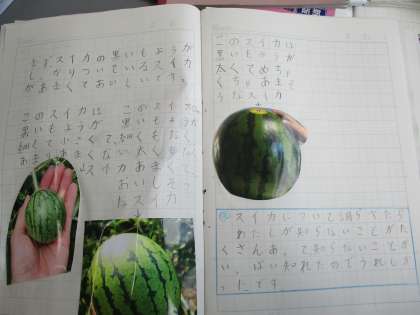 まずスイカの黒いもようが
しっかりついているスイカ
があまくておいしいです。
このスイカは
黒いもようが
細くて小さくて、
あまりあまくない
スイカ
このスイカ
細くもなく
太くもなく
あまくて
おいしそう
なスイカ
このスイカは
黒いもようが
太くてめちゃ
くちゃあまそ
うなスイカ
スイカについて調らたら
わたしが知らないことがた
くさんあって知らないことがい
っぱい知れたのでうれしか
ったです。